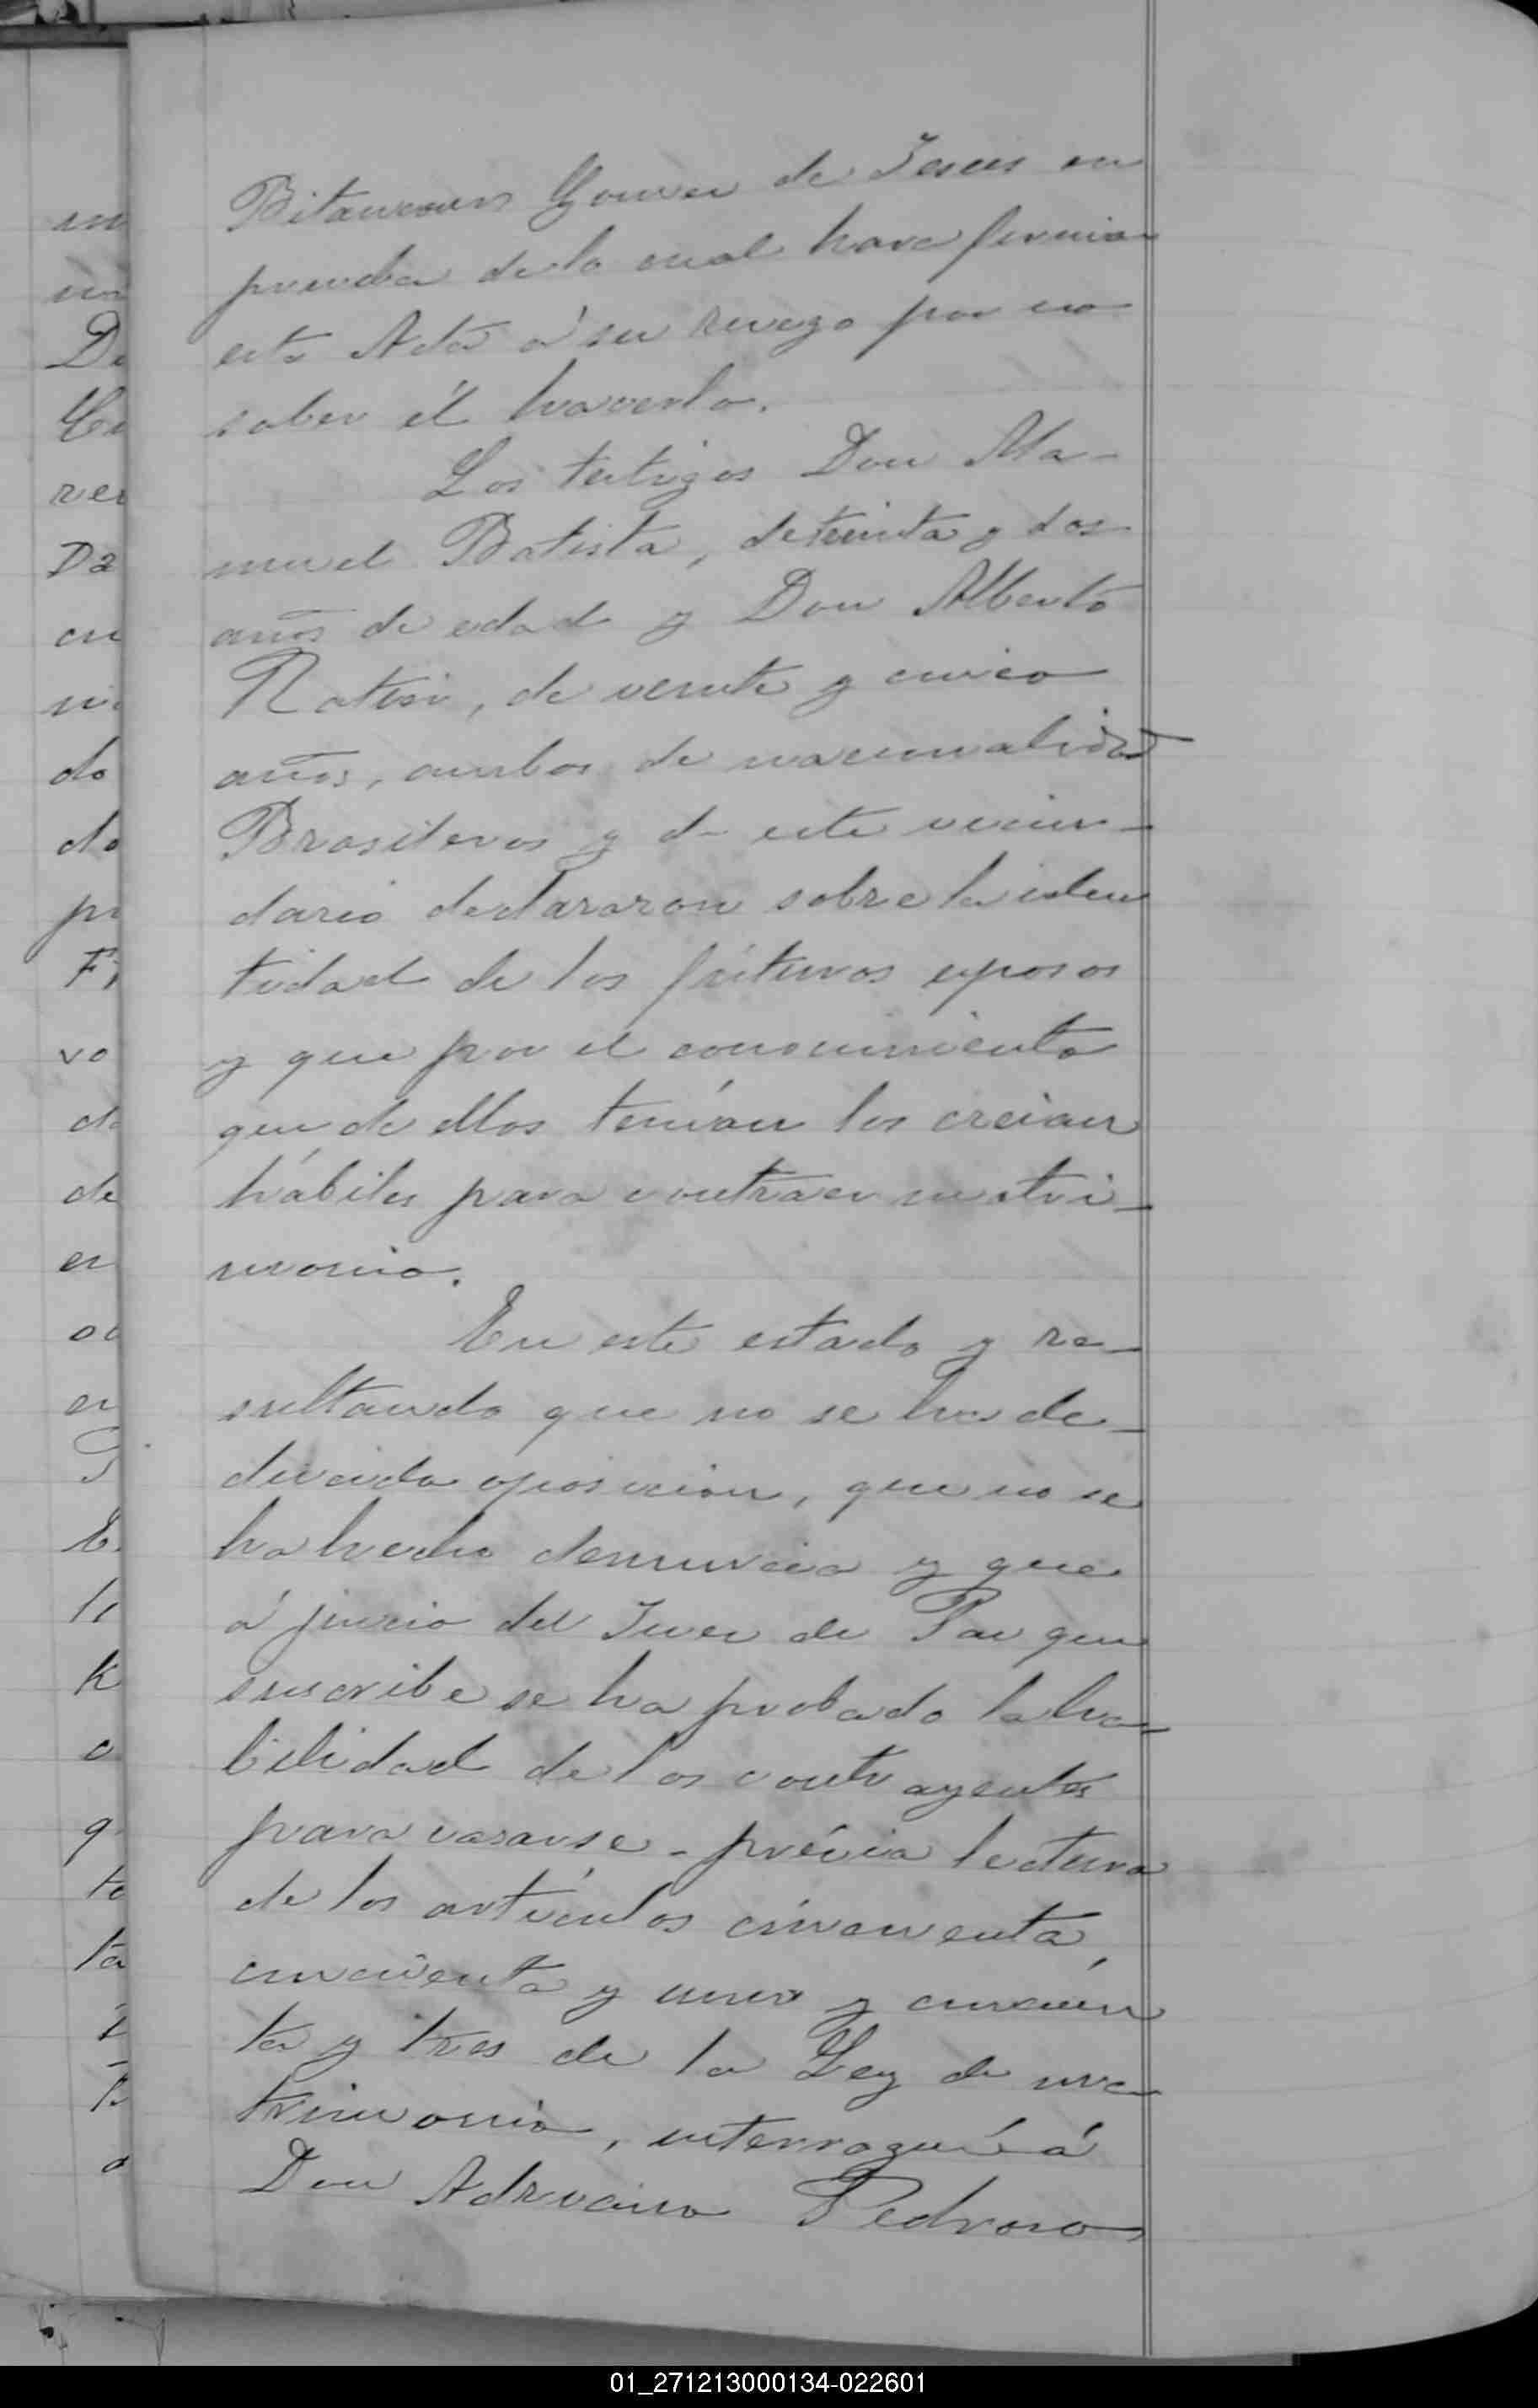 Bitancourt Gomez de Jesus en
prueba de lo cual hace firmar
esta Acta á su ruego por no
saber él hacerlo.
Los testigos Don Ma-
nuel Batista, de treinta y dos
años de edad y Don Alberto
de veinte y cinco
años, ambos de nacionalidad
Brasileros y de este vecin-
dario declararon sobre la iden
tidad de los fúturos esposos
y que por el conocimiento
que de ellos tenían los creian
hábiles para contraer matri-
monio.
En este estado y re-
sultando que no se ha de-
ducido oposicion, que no se
ha hecho denuncia y que
á juicio del Juez de Paz que
suscribe se ha probado la ha-
bilidad de los contrayentes
para casarse - prévia lectura
de los artículos cincuenta,
cincuenta y uno y cincuen
ta y tres de la Ley de ma-
trimonio, interrogué á
Don Adriano Pedroso
01_271213000134-022601